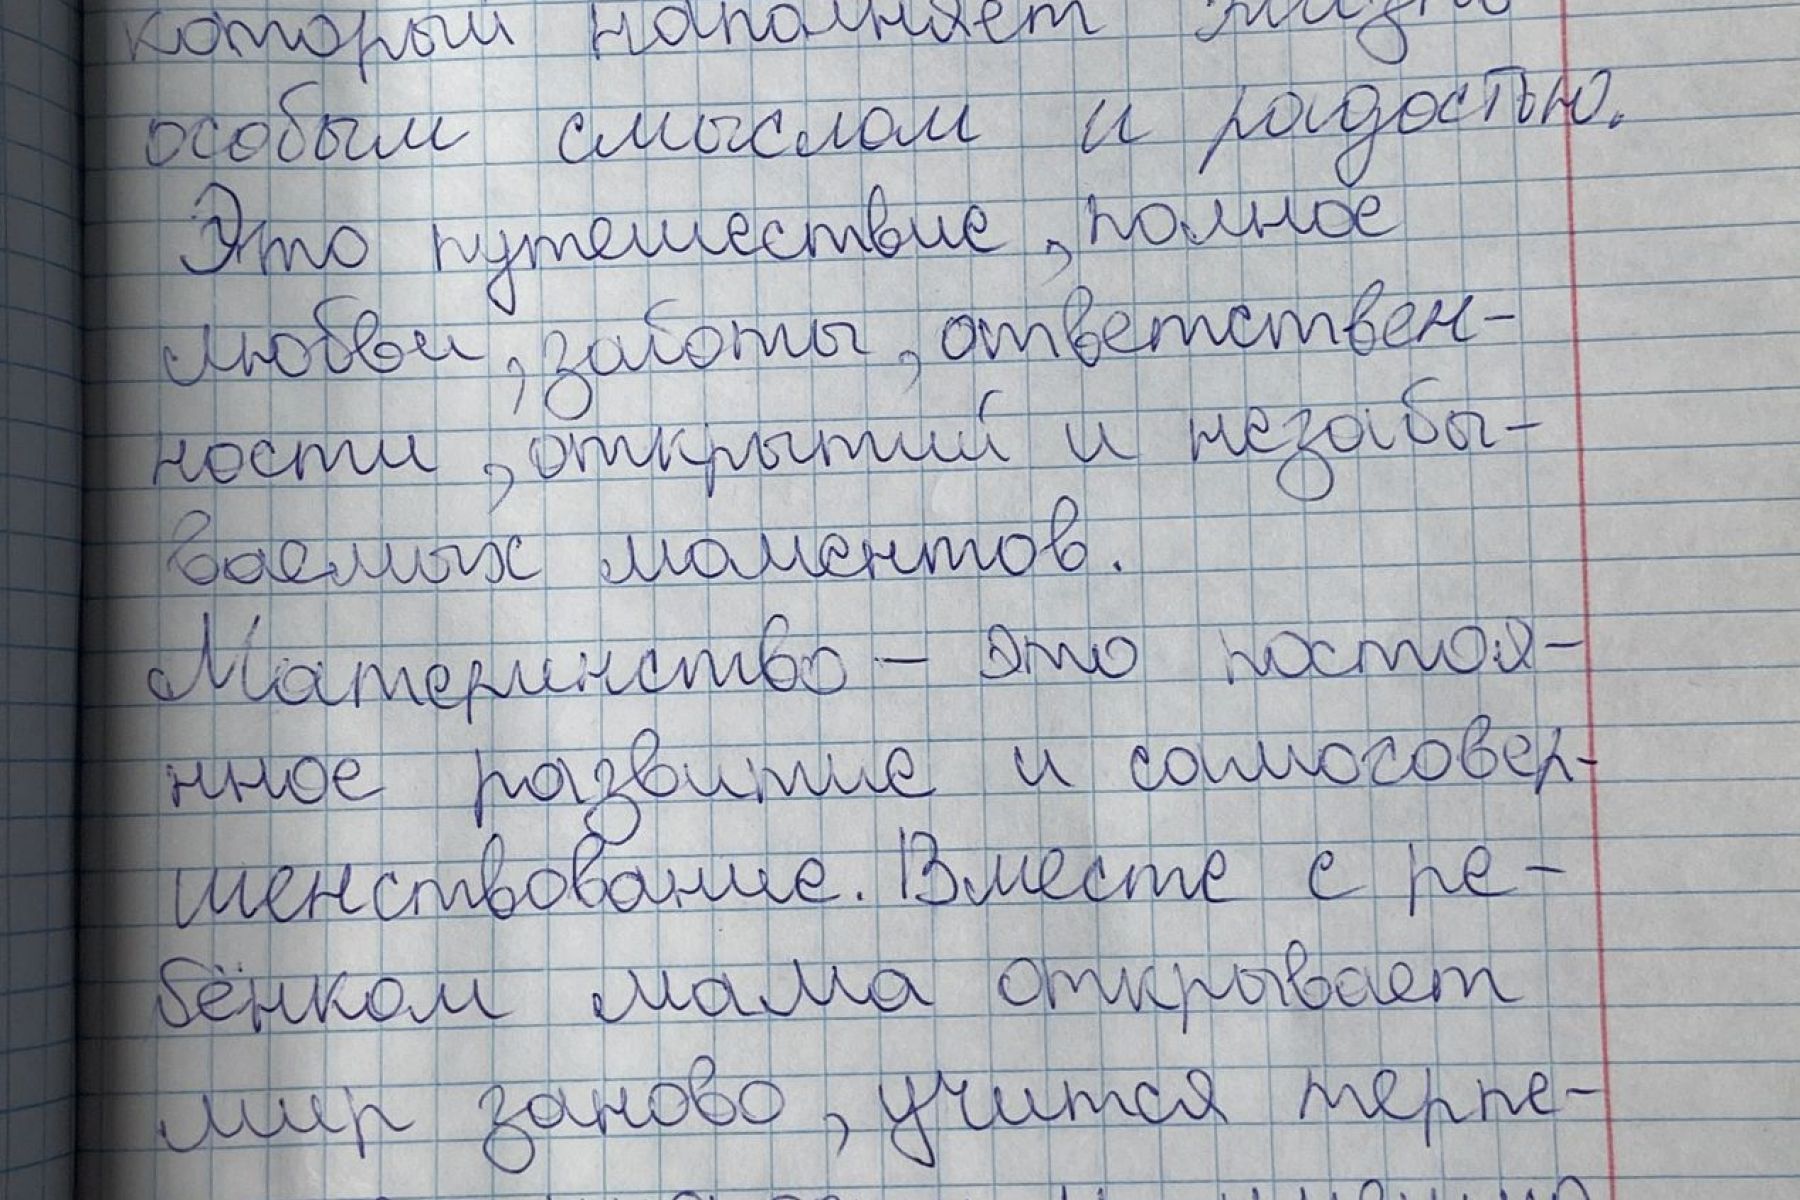 который наполняет жизнь
особым смыслом и радостью.
Это путешествие, полное
любви, заботы, ответствен-
ности, открытий и незабы-
ваемых моментов.
Материнство – это постоя-
нное развитие и самосовер-
шенствование. Вместе с ре-
бёнком мама открывает
мир заново, учится терпе-